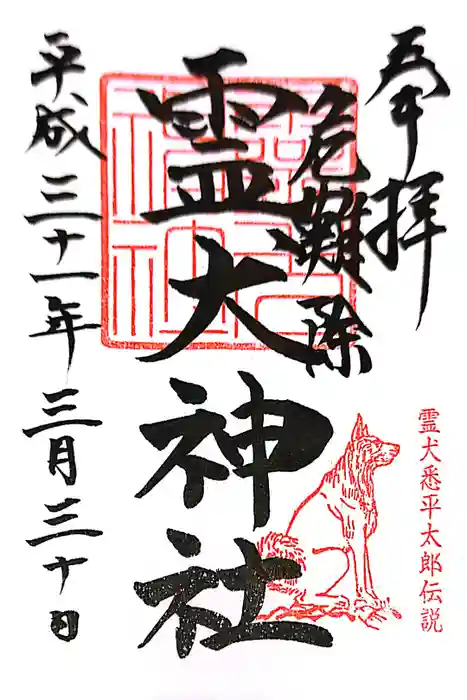 奉拝
霊犬悉平太郎伝説
危難除
霊犬神社
平成三十一年三月三十日